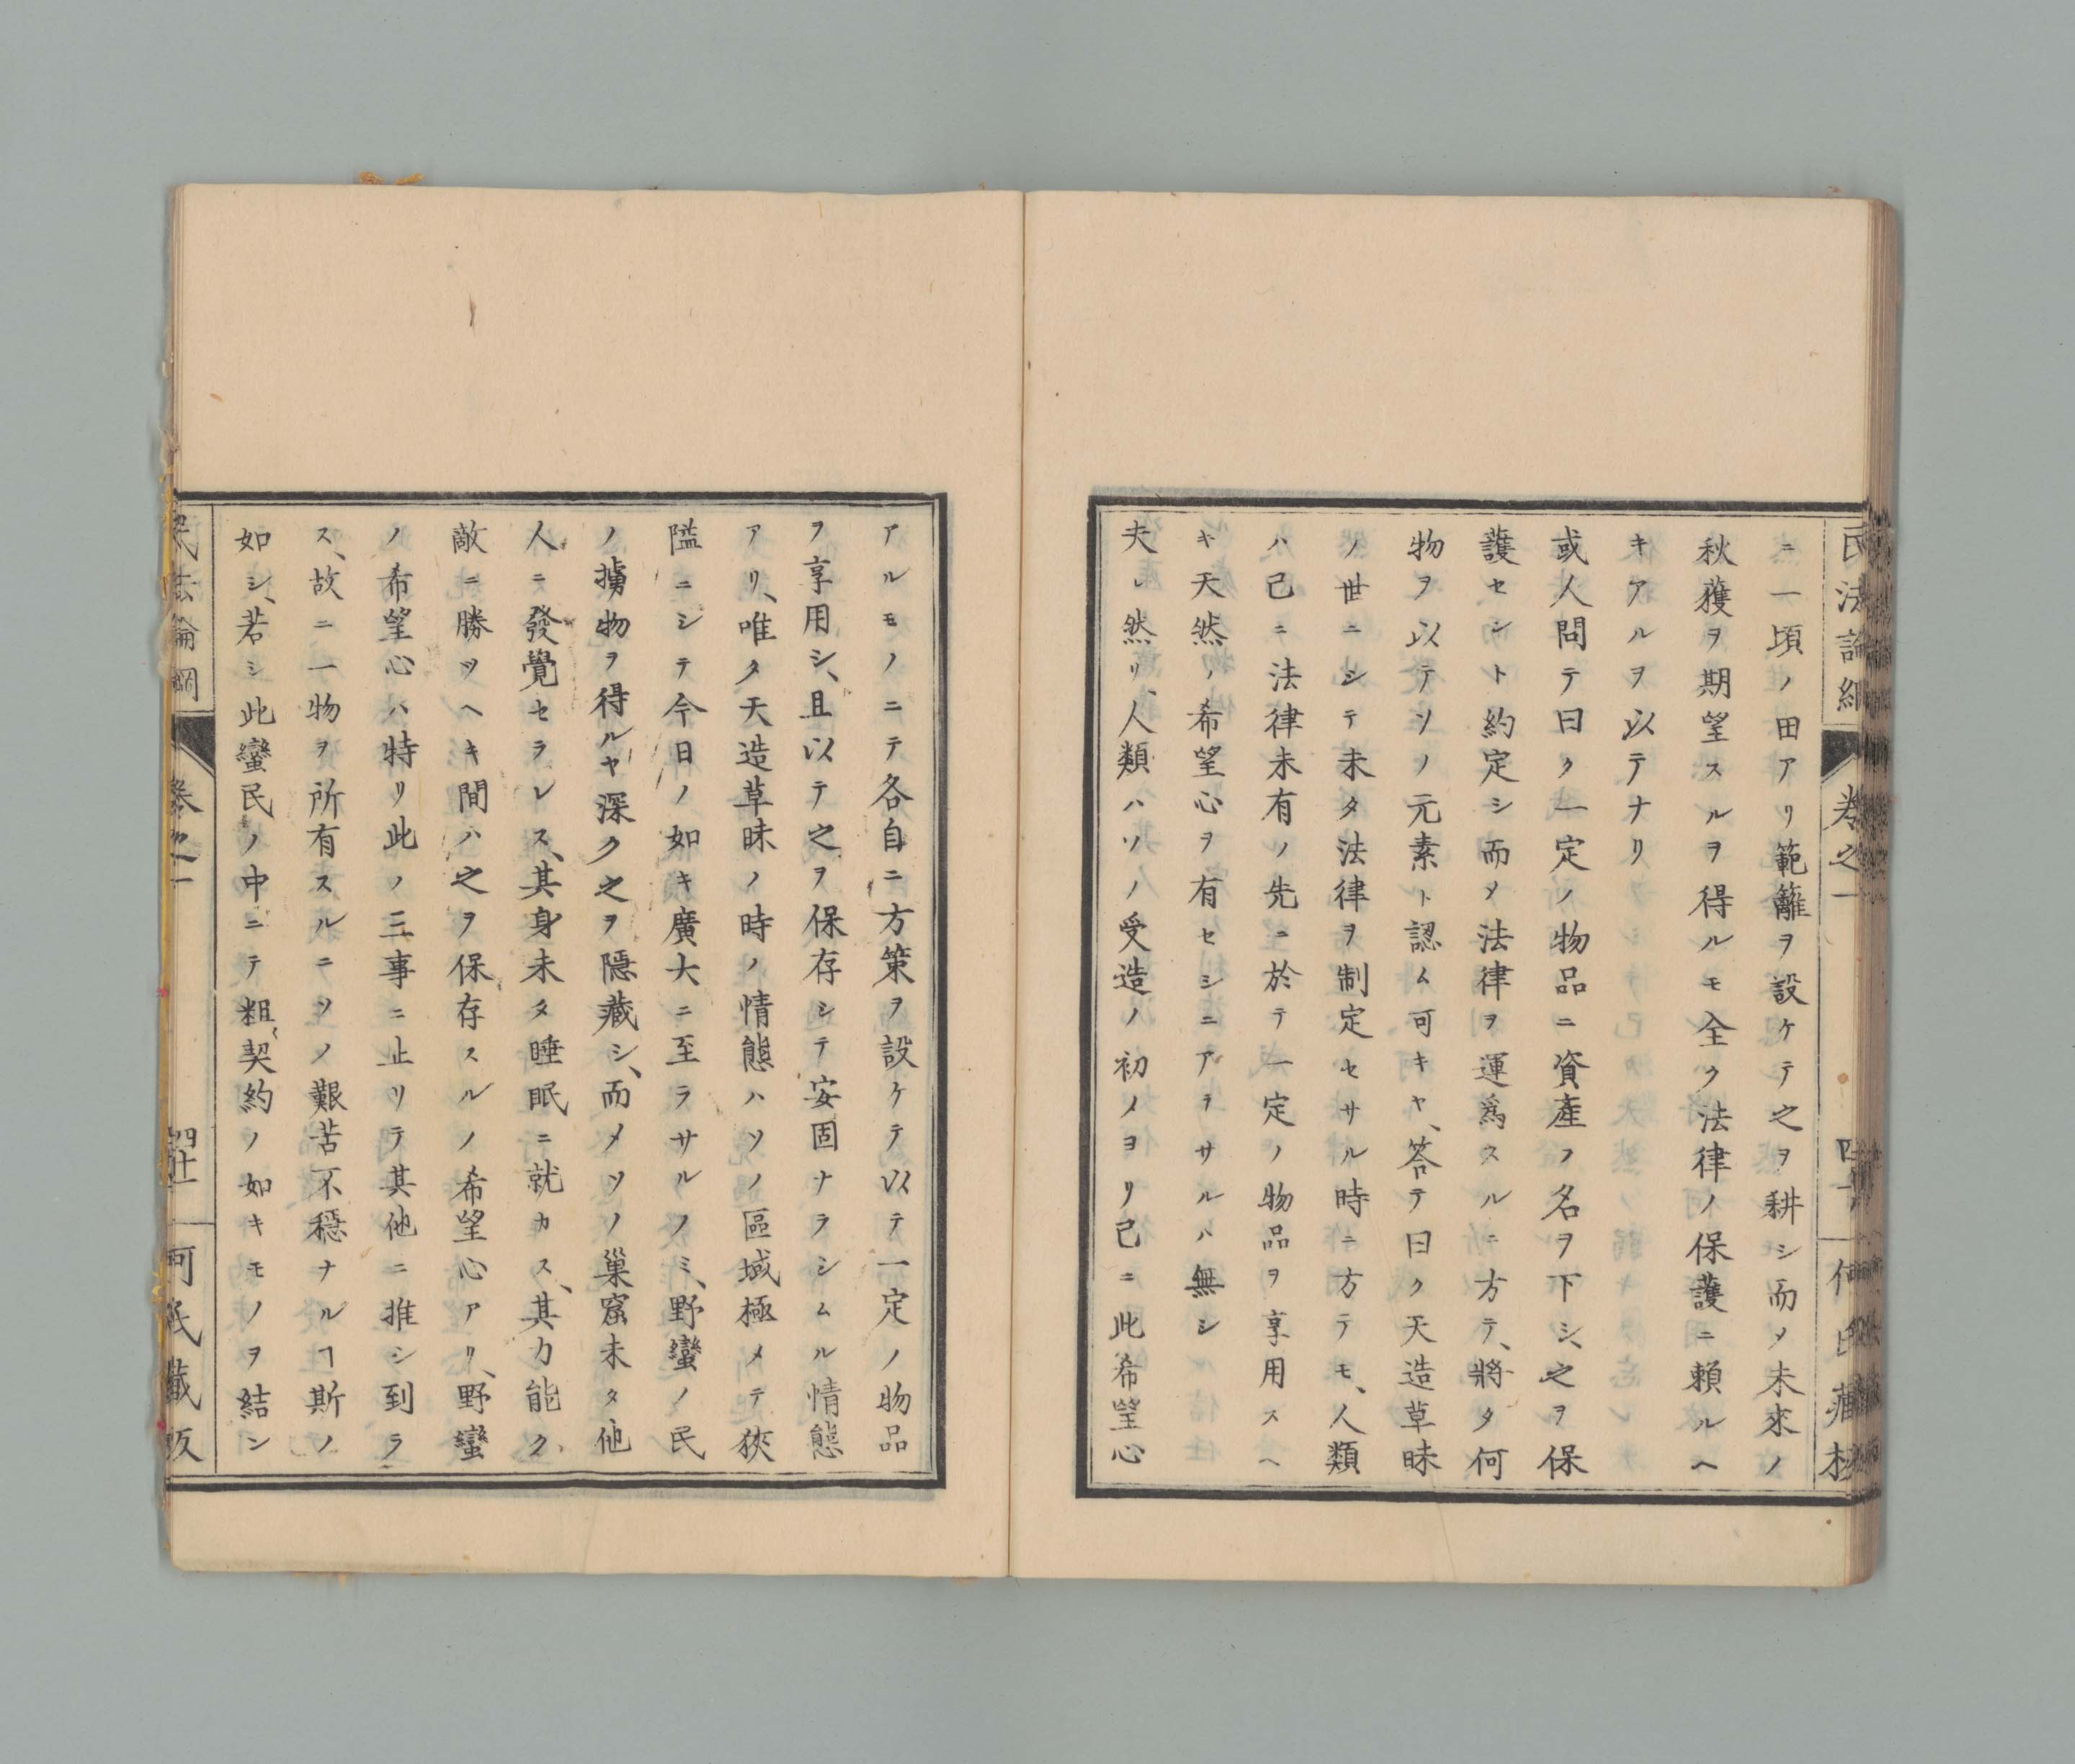 ニ一頃ノ田アリ範籬ヲ設ケテ之ヲ耕シ而メ未來ノ
秋獲ヲ期望スルヲ得ルモ全ク法律ノ保護ニ賴ルヘ
キアルヲ以テナリ
或人問テ曰ク一定ノ物品ニ資產ノ名ヲ下シ、之ヲ保
護セシト約定シ而メ法律ヲ運爲スルニ方テ、將タ何
物ヲ以テソノ元素ト認ム可キヤ、答テ曰ク天造草昧
ノ世ニシテ未タ法律ヲ制定セサル時ニ方テモ、人類
ハ己ニ法律未有ノ先ニ於テ一定ノ物品ヲ享用スヘ
キ天然ノ希望心ヲ有セシニアラサルハ無シ
夫レ然リ、人類ハソノ受造ノ初メヨリ己ニ此希望心
アルモノニテ各自ニ方策ヲ設ケテ以テ一定ノ物品
ヲ享用シ、且以テ之ヲ保存シテ安固ナラシムル情態
アリ、唯タ天造草昧ノ時ノ情態ハソノ區域極メテ狹
隘ニシテ今日ノ如キ廣大ニ至ラサルノミ、野蠻ノ民
ノ擄物ヲ得ルヤ深ク之ヲ隱藏シ、而メソノ巢窟未タ他
人ニ發覺セラレス、其身未タ睡眠ニ就カス、其力能ク
敵ニ勝ツヘキ間ハ之ヲ保存スルノ希望心アリ、野蠻
ノ希望心ハ特リ此ノ三事ニ止リテ其他ニ推シ到ラ
ス、故ニ一物ヲ所有スルニソノ艱苦不穩ナルヿ斯ノ
如シ、若シ此蠻民ノ中ニテ粗〻契約ノ如キモノヲ結ン
民法論綱 卷之一 四十二 何氏藏版